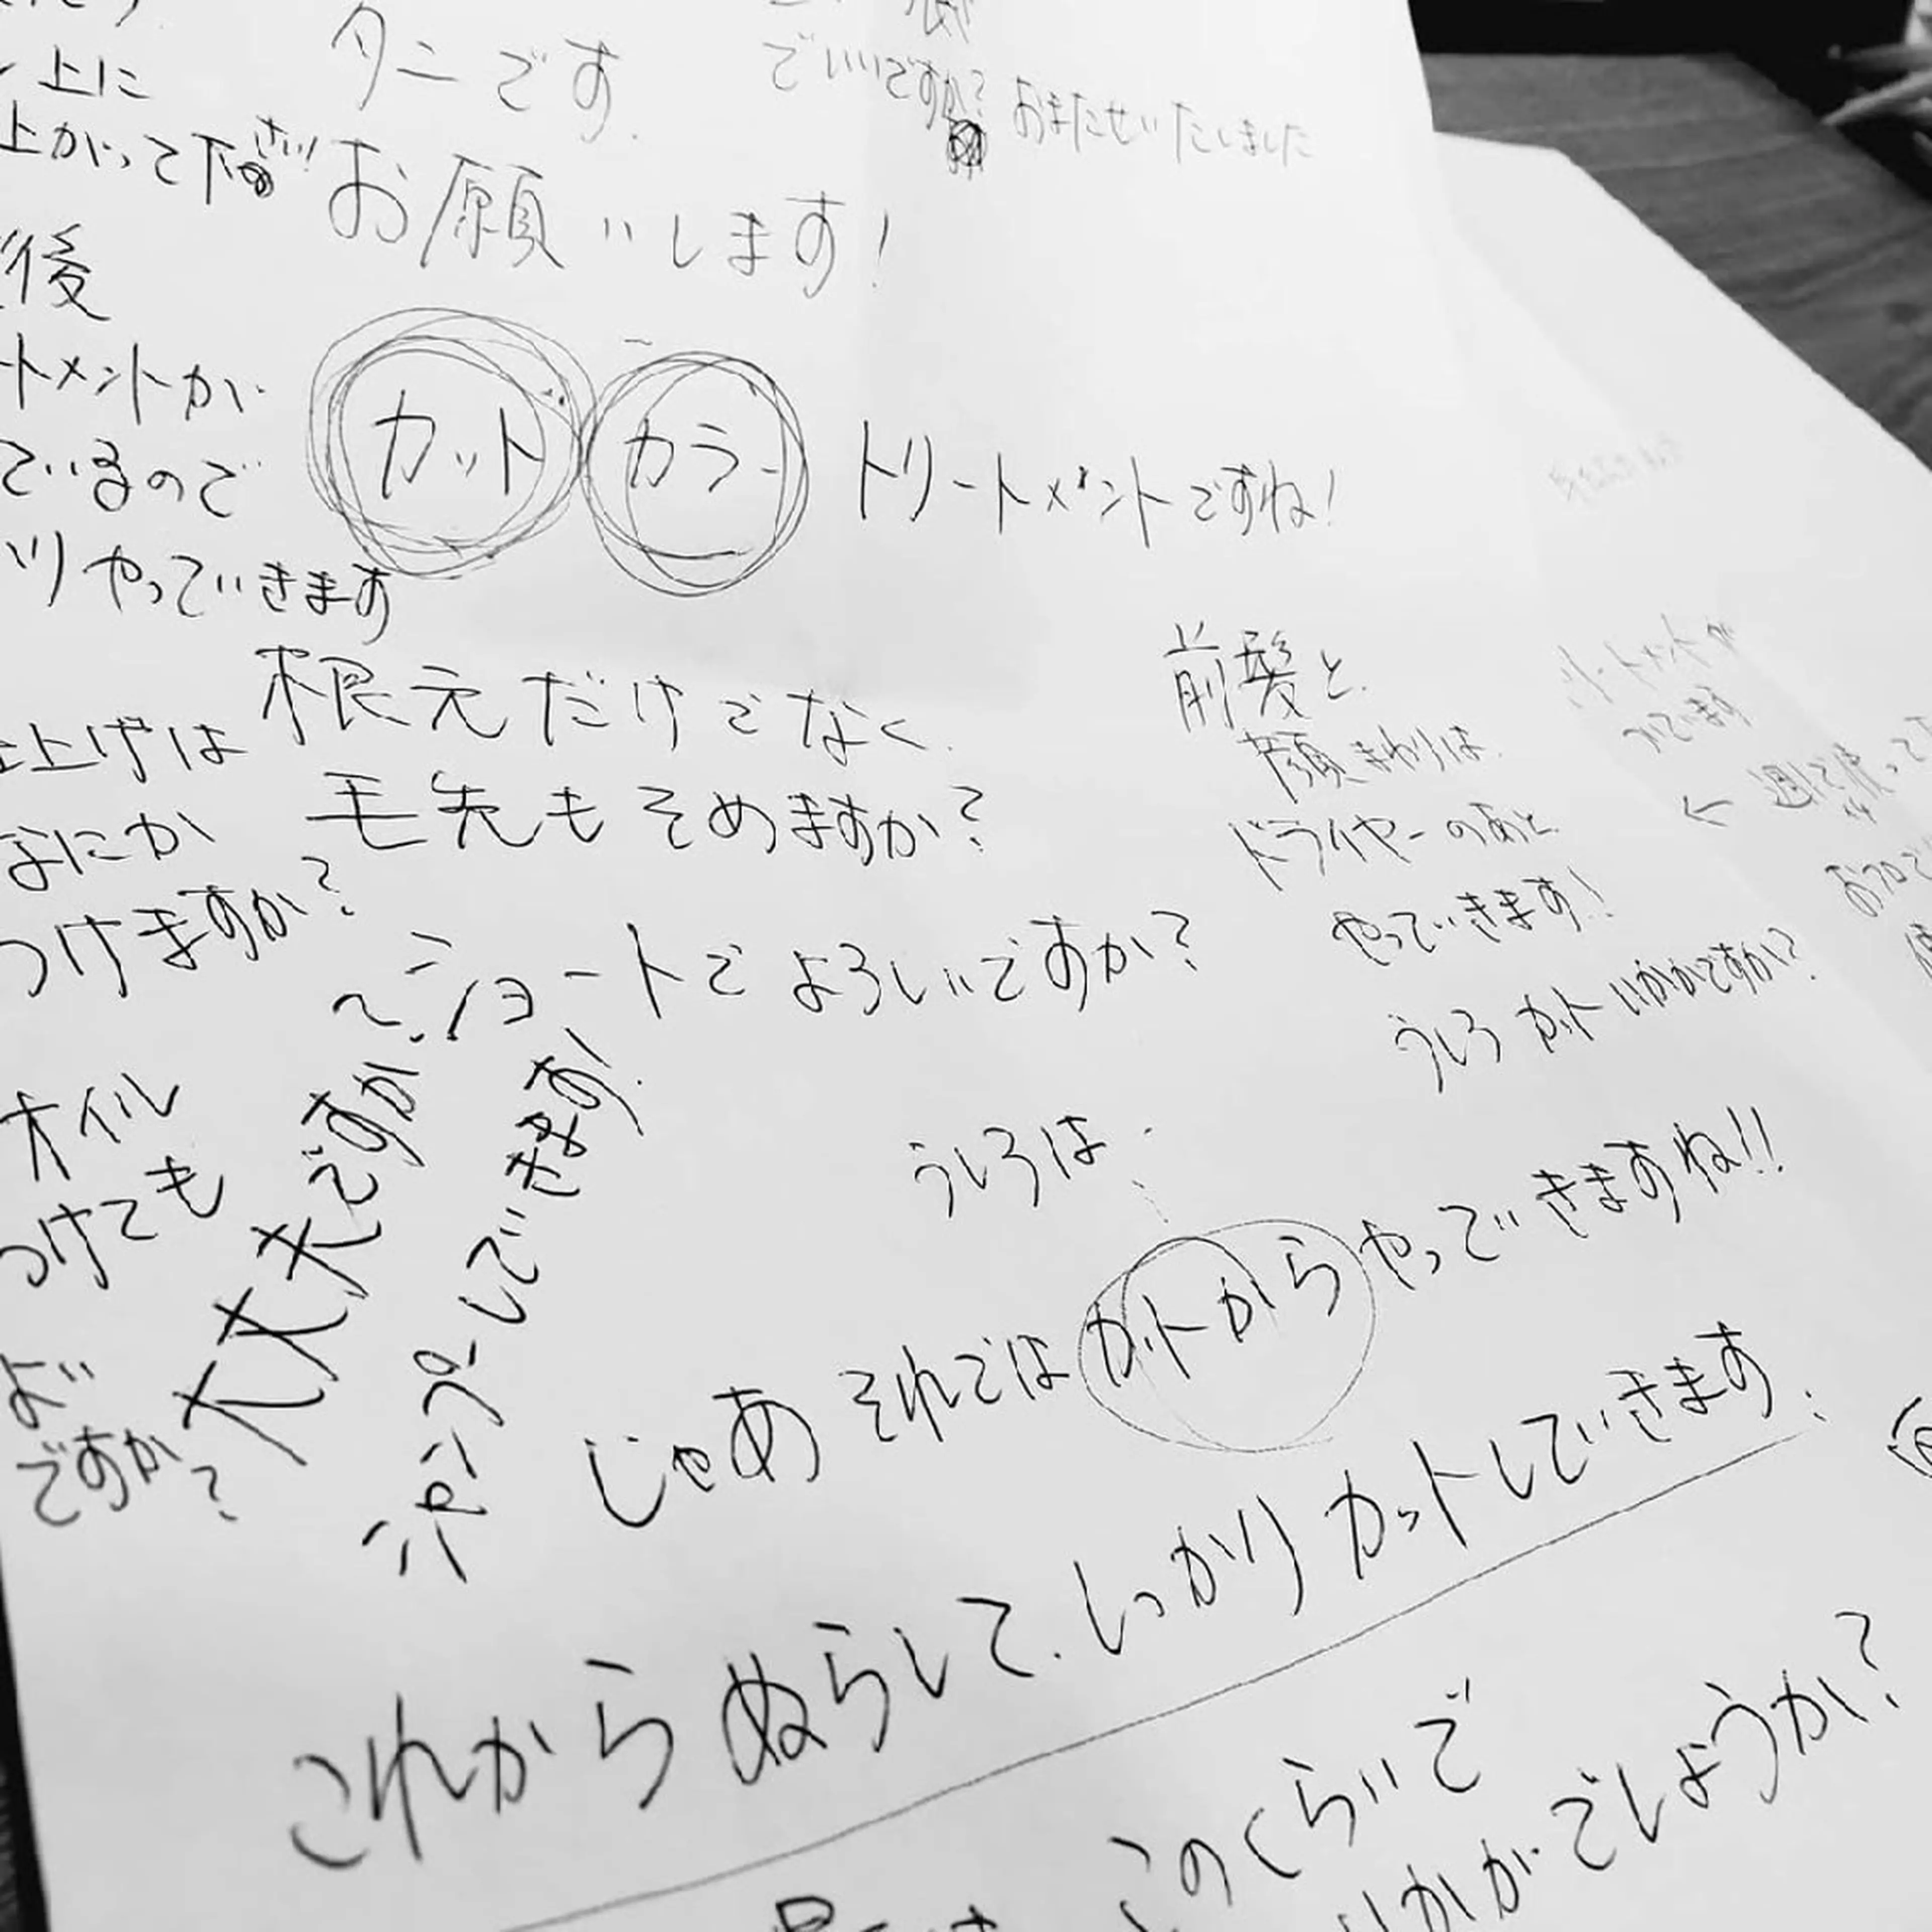 上に
上がって下さい!
後
トメントが
ているので
やっていきます
上げは
なにか
つけますか?
オイル
つけても
大丈夫ですか?
ですか?
タニです.
お願いします!
でいいですか?
おまたせいたしました
カット カラー トリートメントですね!
根元だけでなく
毛先もそめますか?
ショートでよろしいですか?
シャンプーしていきます.
前髪と
顔まわりは
ドライヤーのあと
やっていきます!!
うしろ カット いかがですか?
うしろは
じゃあ それでは カットから やっていきますね!!
これから ぬらして. しっかり カットしていきます.
このくらいで
いかがでしょうか?
トリートメントが
ついています
← 週で使って
おフロで